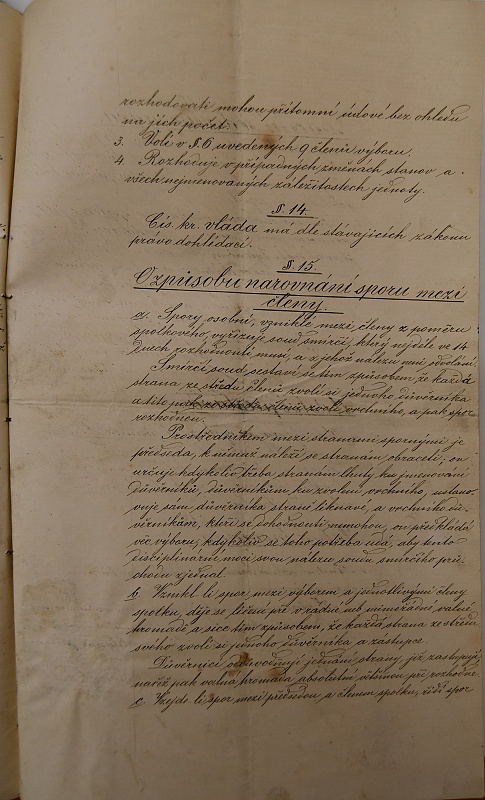 rozhodovati mohou přítomní údové bez ohledu
na jich počet.
3. Volí v §. 6 uvedených 9 členů výboru.
4. Rozhoduje v případných změnách stanov a
všech nejmenovaných záležitostech jednoty.
§. 14.
Cís. kr. vláda má dle stávajících zákonu
právo dohlédací.
§. 15.
O způsobu narovnání sporu mezi
členy.
a. Spory osobní, vzniklé mezi členy z poměru
spolkového, vyřizuje soud smírčí, který nejdéle ve 14
dnech rozhodnouti musí, a z jehož nálezu není odvolání.
Smírčí soud sestaví se tím způsobem, že každá
strana ze středu členů zvolí si jednoho důvěrníka
a tito pak ze středu členů zvolí vrchního, a pak spor
rozhodnou.
Prostředníkem mezi stranami spornými je
předseda, k němuž náleží se stranám obraceti; on
určuje kdykoliv třeba stranám lhuty ku jmenování
důvěrníků, důvěrníkům ku zvolení vrchního, ustano-
vuje sám důvěrníka straně liknavé, a vrchního dů-
věrníkům, kteří se dohodnouti nemohou, on předkládá
věc výboru, kdykoliv se toho potřeba udá, aby tento
disciplinární mocí svou nálezu soudu smírčího prů-
chodu zjednal.
b. Vznikl li spor mezi výborem a jednotlivými členy
spolku, děje se řízení při v řádné neb mimořádné valné
hromadě a sice tím způsobem, že každá strana ze středu
svého zvolí si jednoho důvěrníka a zástupce.
Důvěrníci odůvodňují jednání strany, již zastupují,
načíž pak valná hromada absolutní většinou při rozhodne.
c. Vzejde li spor mezi předsedou a členem spolku, řídí spor